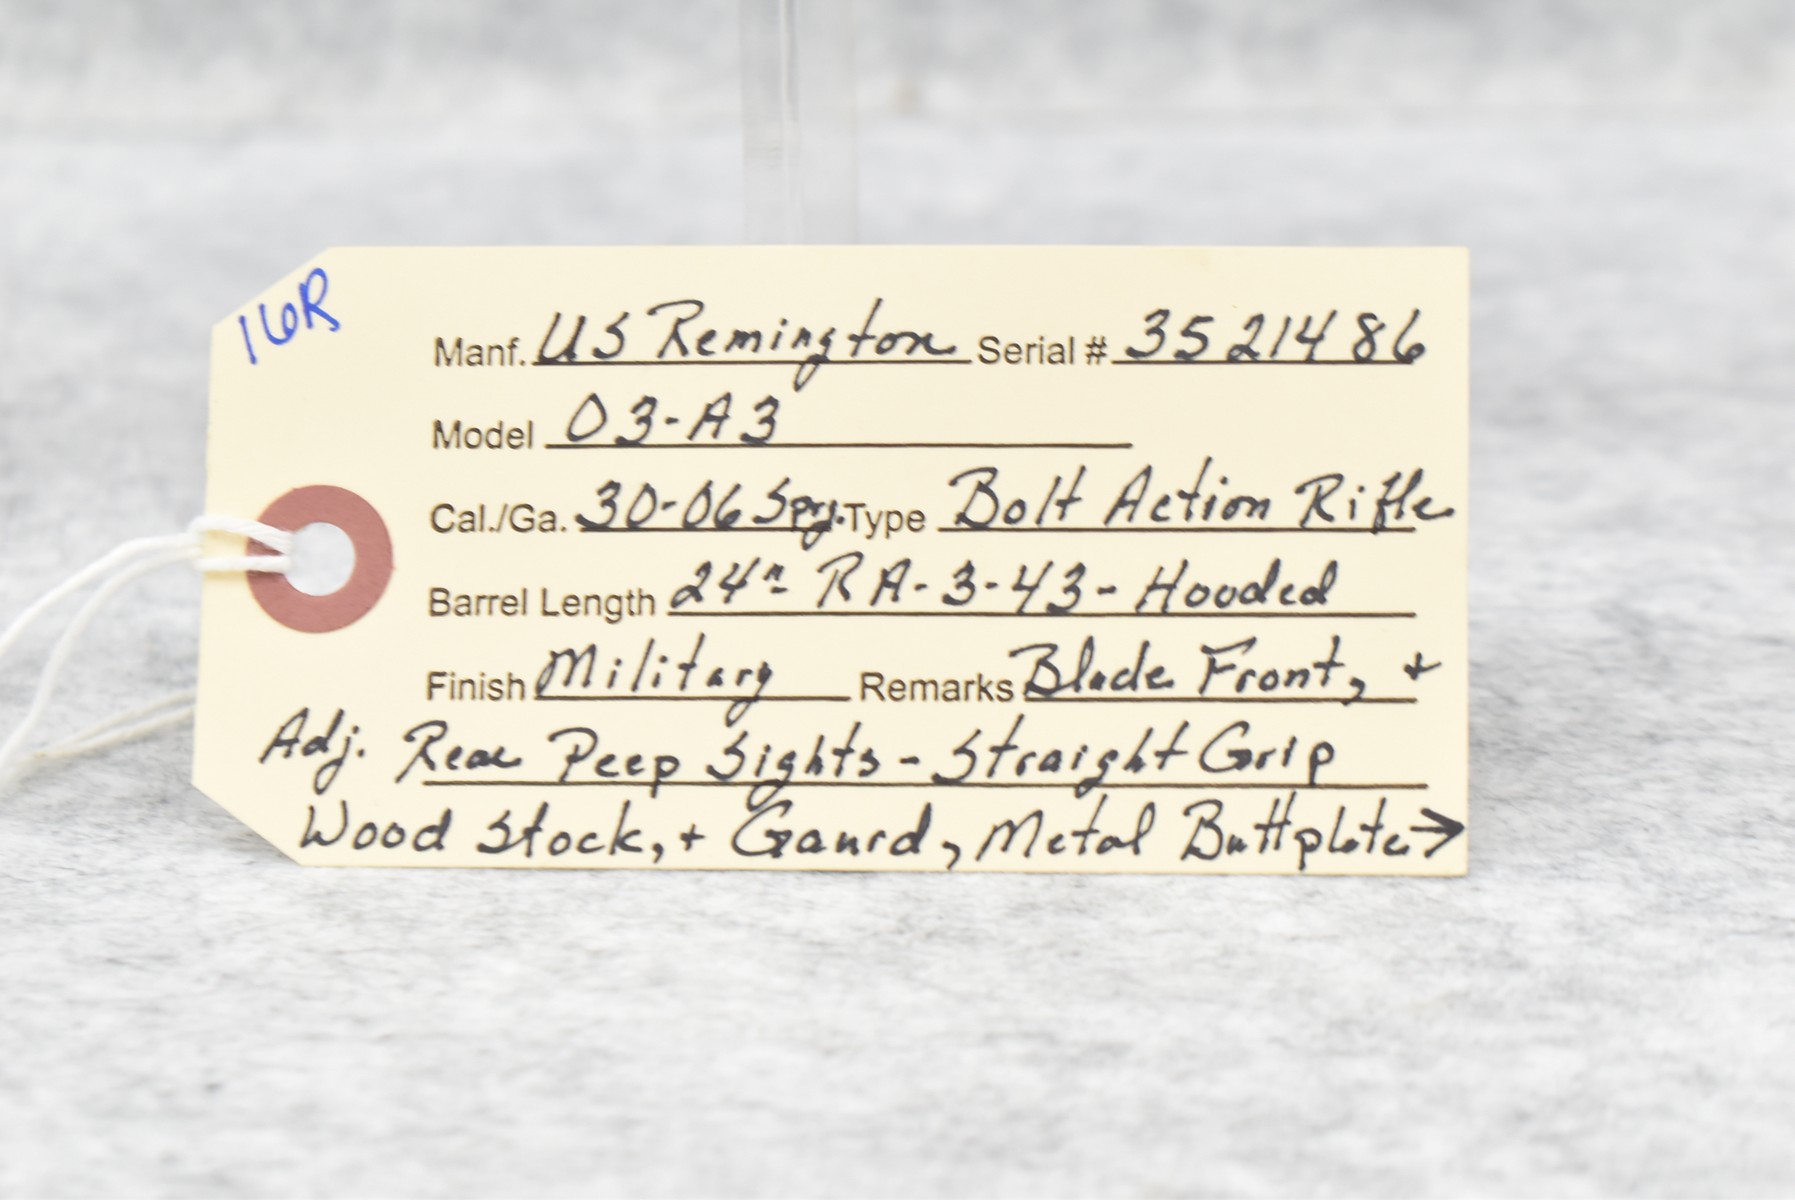 16R
Manf. US Remington Serial # 3521486
Model 03-A3
Cal./Ga. 30-06 Sprg. Type Bolt Action Rifle
Barrel Length 24"- RA-3-43- Hooded
Finish Military Remarks Blade Front, +
Adj. Rear Peep Sights - Straight Grip
Wood Stock, + Gaurd, Metal Buttplate→